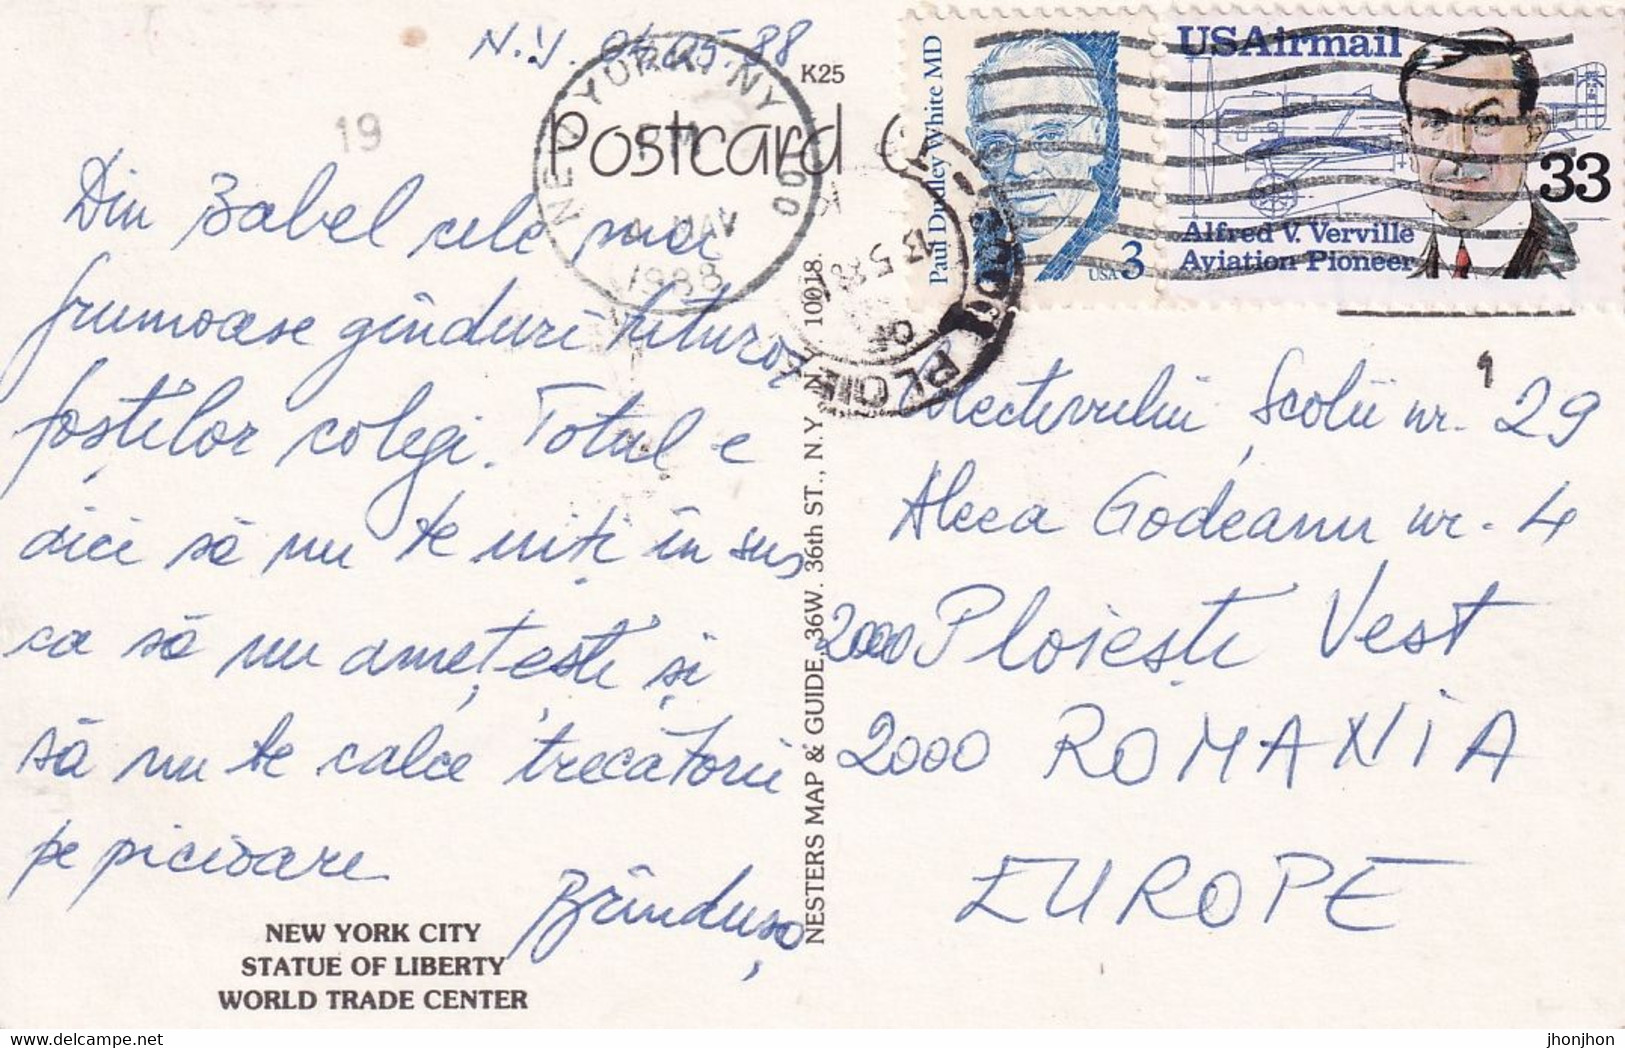 N.Y. 04.05.88
K25
Postcard
19
NEW YORK, NY 100
PM
4 MAY
1988
Paul Dudley White MD
USA 3
USAirmail
33
Alfred V. Verville
Aviation Pioneer
13 5 88
OF. PLOIEȘTI
Din Babel cele mai
frumoase gînduri tuturor
foștilor colegi. Totul e
aici să nu te uiți în sus
ca să nu amețești și
să nu te calce trecătorii
pe picioare
Brîndușa
NEW YORK CITY
STATUE OF LIBERTY
WORLD TRADE CENTER
NESTERS MAP & GUIDE, 36W. 36th ST., N.Y. N.Y. 10018.
Colectivului Școlii nr. 29
Aleea Godeanu nr. 4
2000 Ploiești Vest
2000 ROMANIA
EUROPE
jhonjhon